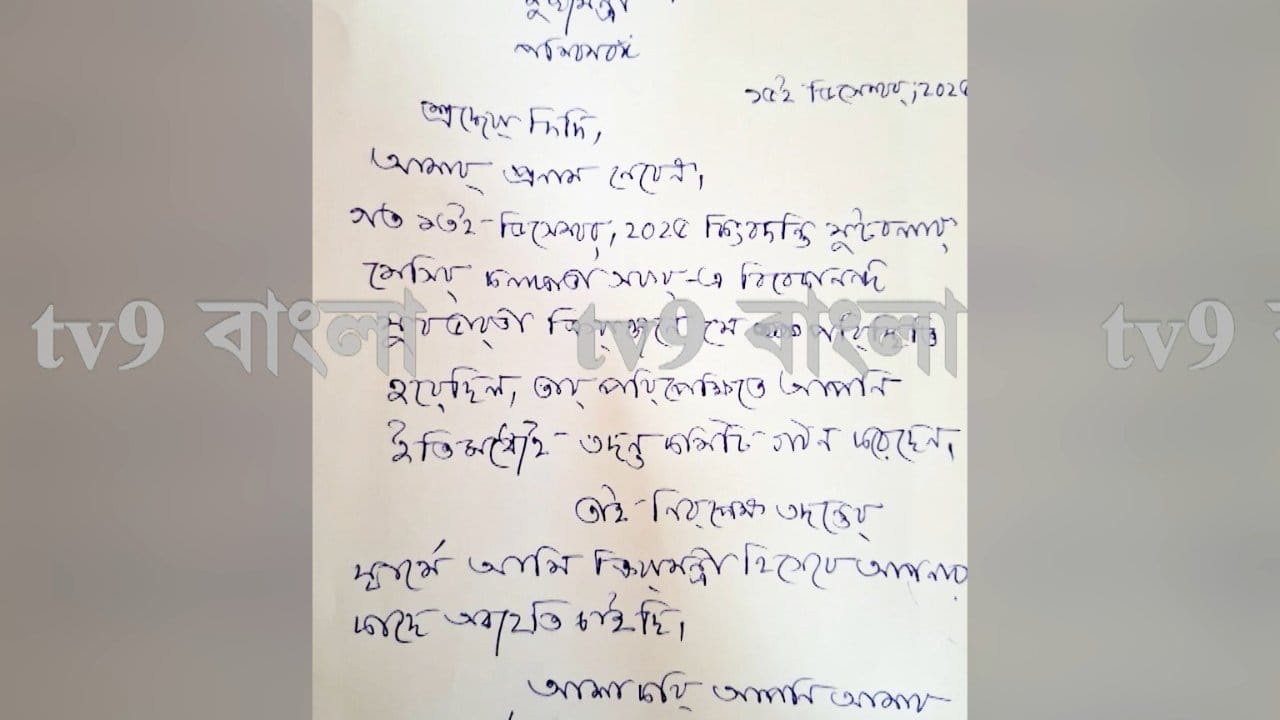 মুখ্যমন্ত্রী
পশ্চিমবঙ্গ
১৫ই ডিসেম্বর, 2025
শ্রদ্ধেয় দিদি,
আমার প্রনাম নেবেন,
গত ১৩ই ডিসেম্বর, 2025 কিংবদন্তি ফুটবলার
মেসির কলকাতা সফর-এ বিবেকানন্দ
যুবভারতী ক্রীড়াঙ্গনে যে পরিস্থিতি
হয়েছিল, তার পরিপ্রেক্ষিতে আপনি
ইতিমধ্যেই তদন্ত কমিটি গঠন করেছেন,
তাই নিরপেক্ষ তদন্তের
স্বার্থে আমি ক্রীড়ামন্ত্রী হিসেবে আপনার
কাছে অব্যহতি চাইছি,
আশা করি আপনি আমার
tv9 বাংলা tv9 বাংলা tv9